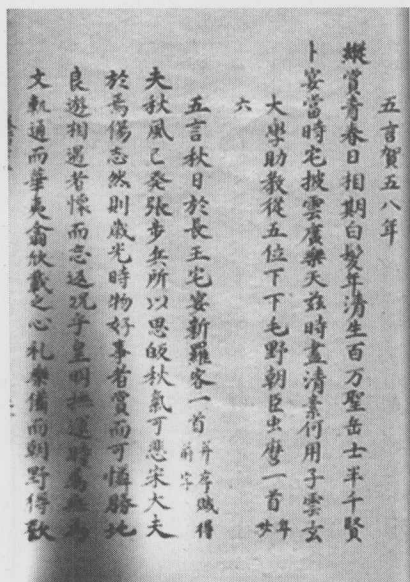 五言賀五八年
縱賞青春日相期白髮年清生百万聖岳士半千賢
卜宴當時宅披雲廣樂天茲時盡清素何用子雲玄
大學助教從五位下下毛野朝臣虫麿一首年卅
六
五言秋日於長王宅宴新羅客一首并序賦得前字
夫秋風已發張步兵所以思皈秋氣可悲宋大夫
於焉傷志然則歲光時物好事者賞而可憐勝地
良遊相遇者懷而忘返況乎皇明撫運時屬無為
文軌通而華夷翕欣戴之心礼樂備而朝野得歡